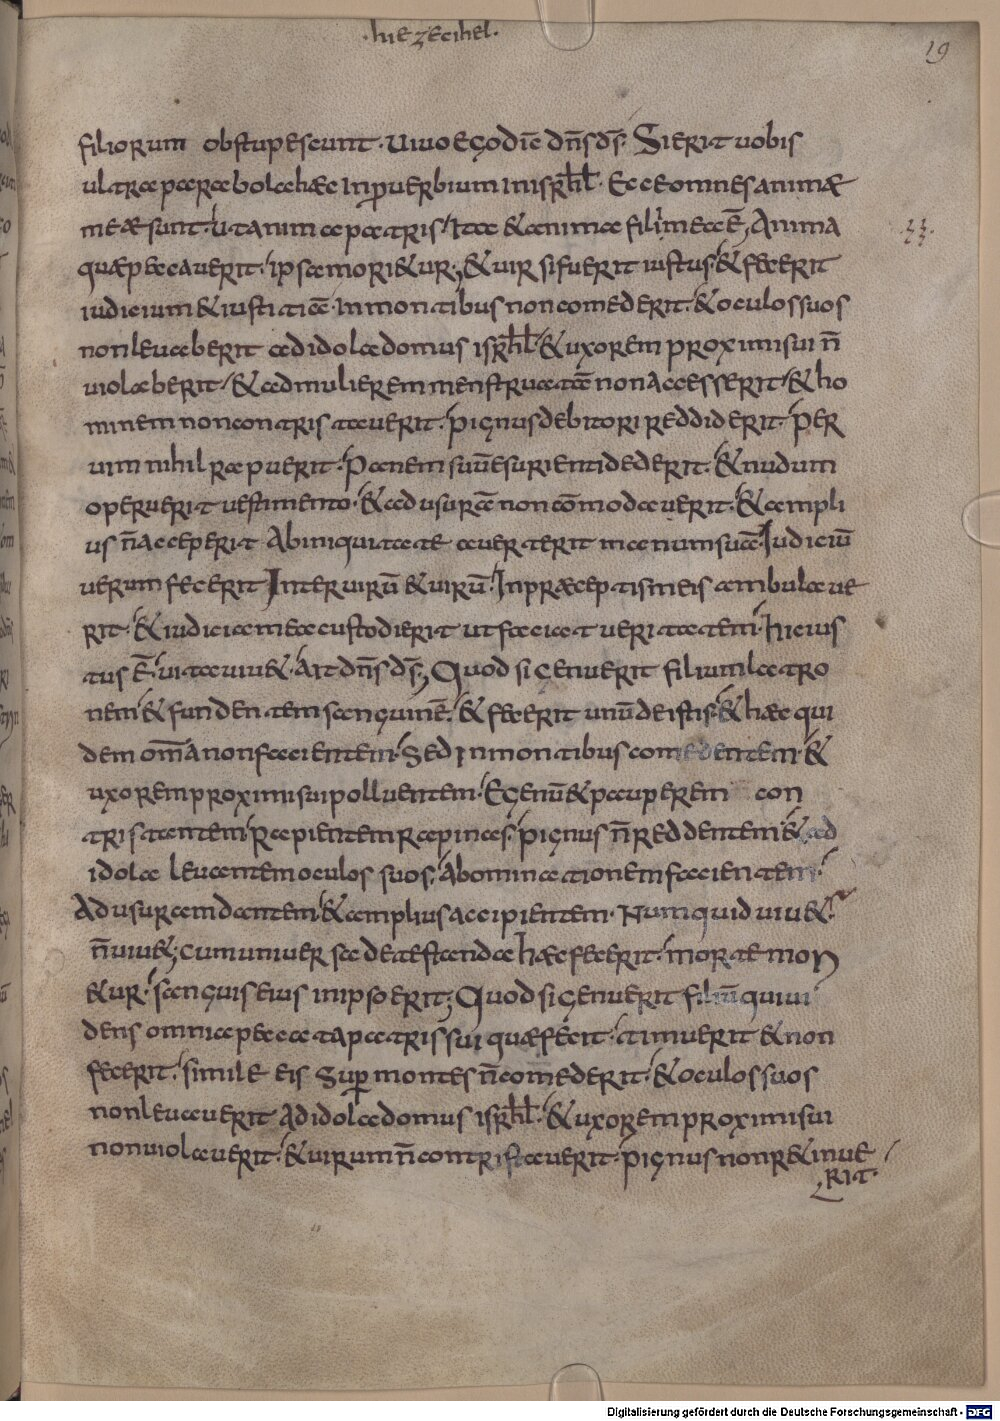 ·hiezechel·
19
filiorum obstupescunt· Uiuo ego dīc dn̄s ds̄· Si erit uobis
ultra parabola haec in puerbium in isrhl· Ecce omnes animæ
meæ sunt· ut anima patris/ Itae & anima filii mea ē, Anima
quæ peccauerit· ipsa mori&ur; & uir si fuerit iustus· & fecerit
iudicium & iustitiā· in montibus non comederit· & oculos suos
non leuaberit ad idola domus isrhl· & uxorem proximi sui n̄
uiolaberit/ & ad mulierem menstruatā non accesserit/ & ho
minem non contristauerit· pignus debitori reddiderit· per
uim nihil rapuerit· Panem suū esurienti dederit· & nudum
operuerit uestimento· & ad usurā non cōmodauerit· & ampli
us n̄ acceperit Ab iniquitate auerterit manum suā· Iudiciū
uerum fecerit Inter uirū & uirū· In præceptis meis ambulaue
rit· & iudicia mea custodierit ut faciat ueritatem· hic ius
tus ē· uita uiu&· Ait dn̄s ds̄; Quod si genuerit filium latro
nem & fundentem sanguinē· & fecerit unū de istis· & hæc qui
dem om̄a non facientem· Sed in montibus comedentem· &
uxorem proximi sui polluentem· Egenū & pauperem con
tristantem· Rapientem rapinas· pignus n̄ reddentem & ad
idola leuantem oculos suos· Abominationem facientem·
Ad usuram dantem· & amplius accipientem· Numquid uiu&·
n̄ uiu&; cum uniuersa detestanda hæc fecerit· morte mori
&ur· sanguis eius in ipso erit; Quod si genuerit filiū qui ui
dens omnia peccata patris sui quæ fecit· timuerit & non
fecerit· simile eis Sup montes n̄ comederit· & oculos suos
non leuauerit Ad idola domus isrhl· & uxorem proximi sui
non uiolauerit· & uirum n̄ contristauerit· pignus non r&inue
rit·
Digitalisierung gefördert durch die Deutsche Forschungsgemeinschaft - DFG